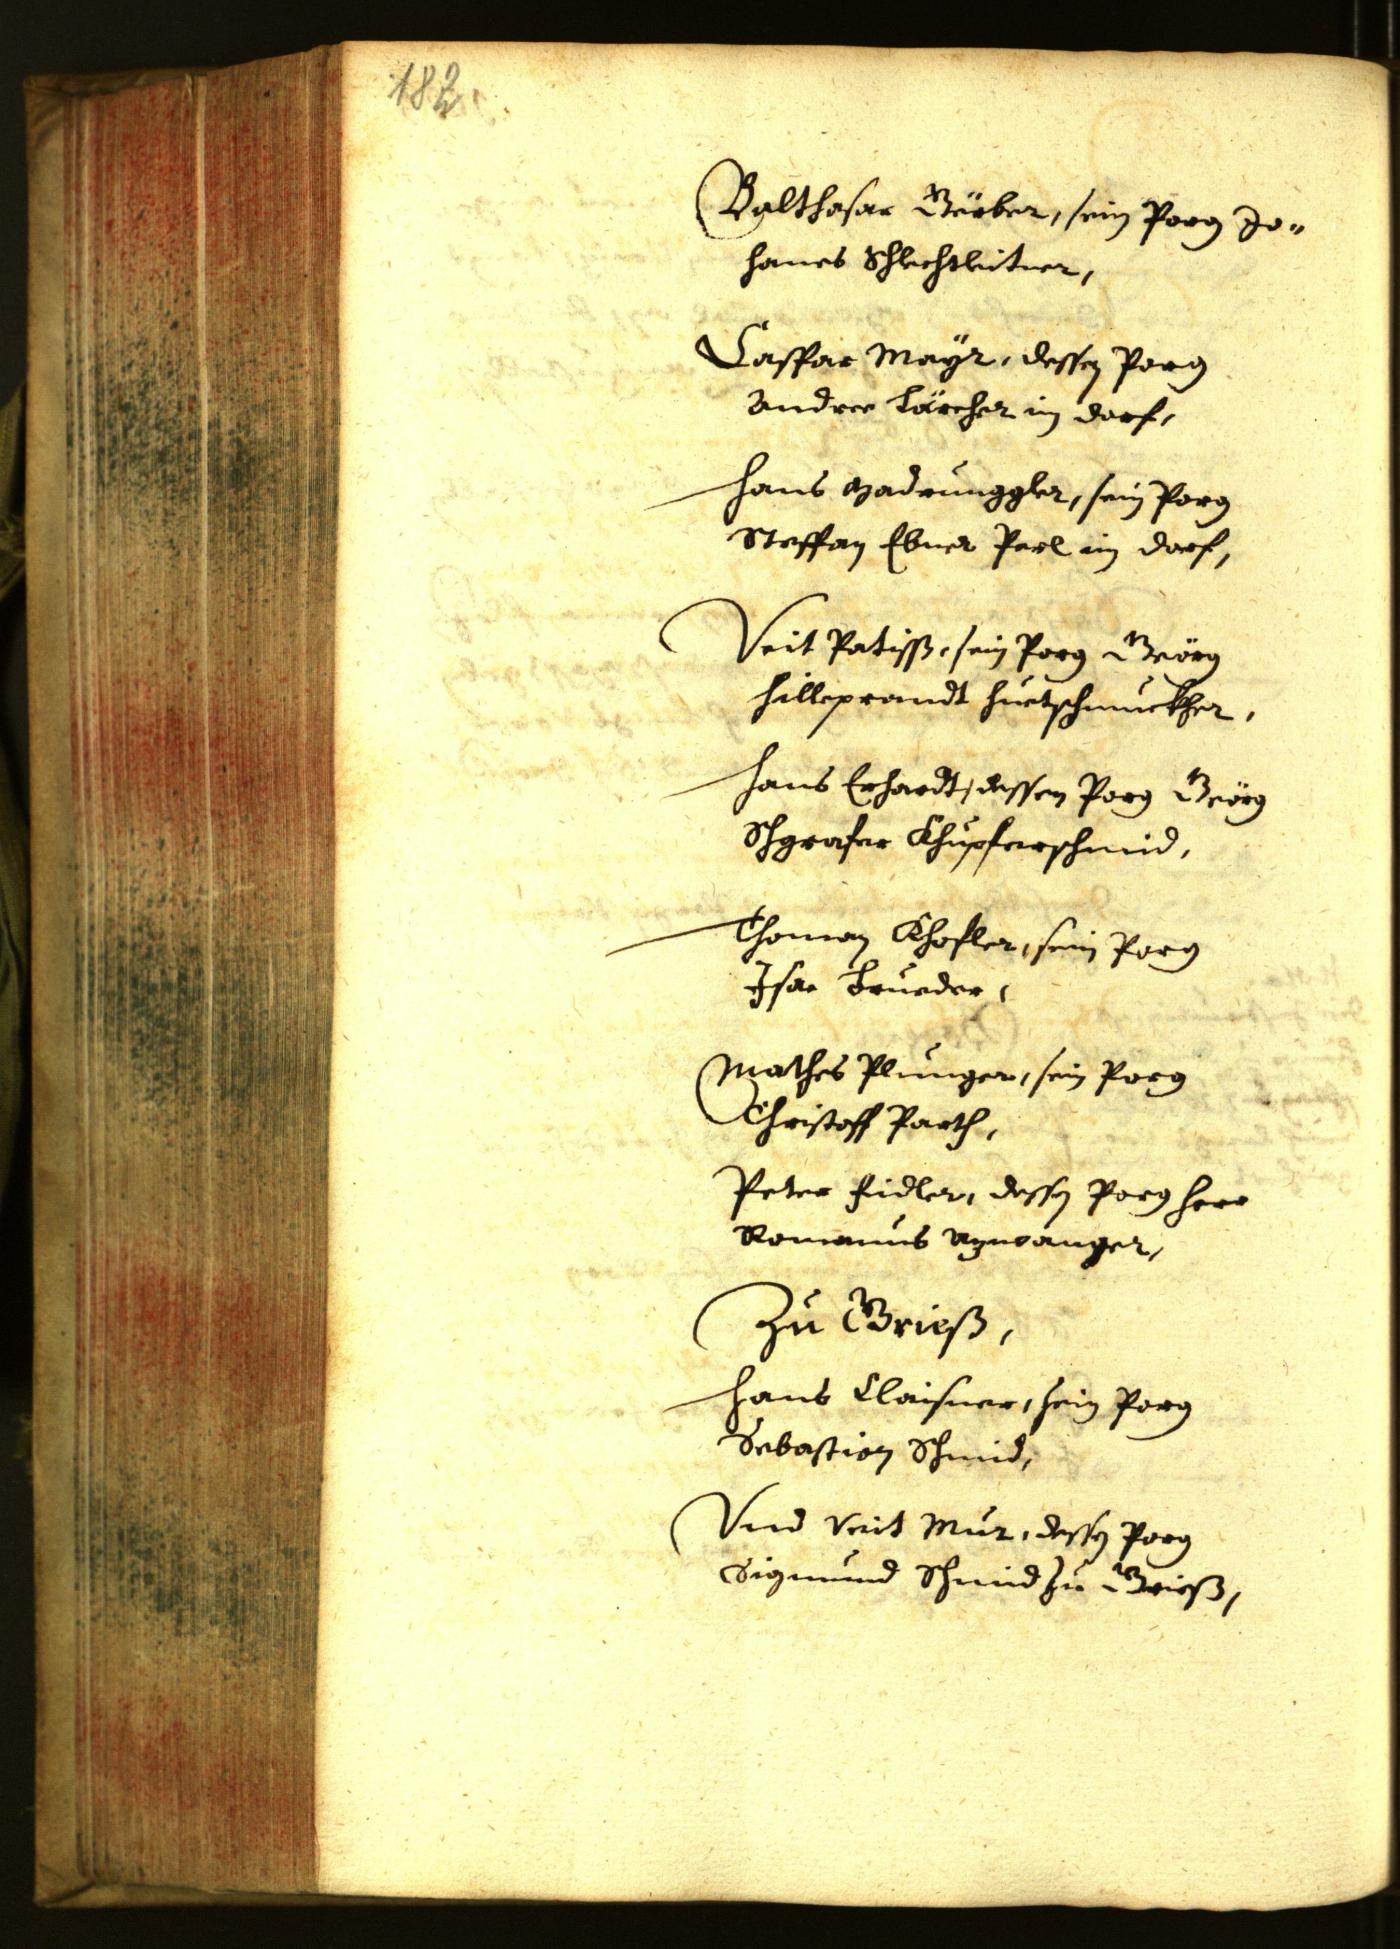 182
Balthasar Gërber, sein Porg Jo-
hanes Schlechtleitner,
Casspar Mayr, dessen Porg
Andree Lärcher im dorf,
Hans Madrunggler, sein Porg
Steffan Ebner Perl im dorf,
Veit Patiss, sein Porg Geörg
Hilleprandt Huetschmuckher,
Hans Erhardt, dessen Porg Geörg
Schgrafer Khupferschmid,
Thoman Khofler, sein Porg
Isac Brueder,
Mathes Plunger, sein Porg
Christoff Parth,
Peter Fidler, dessen Porg Herr
Romanus
Zu Grieß,
Hans Claisner, sein Porg
Sebastion Schmid,
Vnd Veit Mur, dessen Porg
Sigmund Schmid zu Grieß,